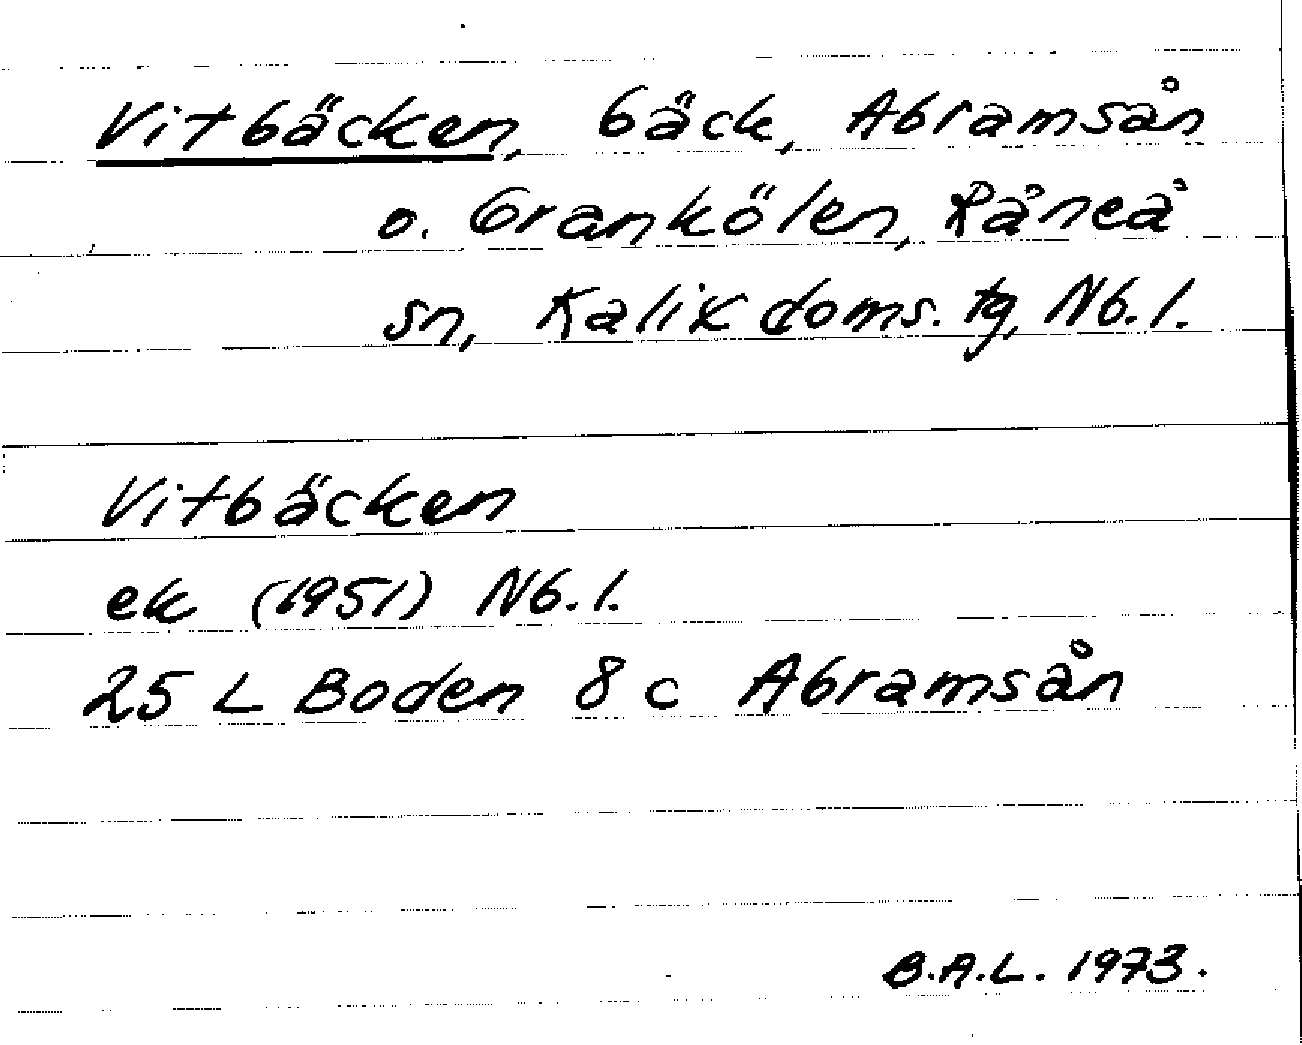 Vitbäcken, bäck, Abramsån
o. Grankölen, Råneå
sn, Kalix doms. tg, Nb. l.
Vitbäcken
ek (1951) Nb. l.
25 L Boden 8 c Abramsån
B.A.L. 1973.